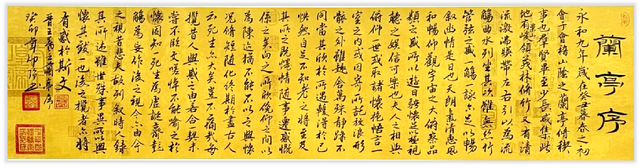 蘭亭序
永和九年歲在癸丑暮春之初
會于會稽山陰之蘭亭脩稧
事也羣賢畢至少長咸集此
地有崇領茂林脩竹又有清
流激湍暎帶左右引以為流
觴曲水列坐其次雖無絲竹
管弦之盛一觴一詠亦足以暢
敘幽情是日也天朗氣清惠風
和暢仰觀宇宙之大俯察品
類之盛所以遊目騁懷足以極視
聽之娛信可樂也夫人之相與
俯仰一世或取諸懷抱悟言一
室之內或因寄所託放浪形
骸之外雖趣舍萬殊靜躁不
同當其欣於所遇蹔得於己
怏然自足不知老之將至及
其所之既惓情隨事遷感慨
係之矣向之所欣俛仰之間以
為陳迹猶不能不以之興懷
況脩短隨化終期於盡古人
云死生亦大矣豈不痛哉每
攬昔人興感之由若合一契未
嘗不臨文嗟悼不能喻之於
懷固知一死生為虛誕齊彭
殤為妄作後之視今亦由今
之視昔悲夫故列敘時人錄
其所述雖世殊事異所以興
懷其致一也後之攬者亦將
有感於斯文
晉王羲之蘭亭序
癸卯年